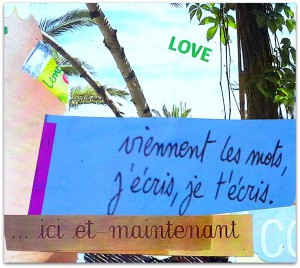 LOVE
viennent les mots,
j'écris, je t'écris.
... ici et maintenant